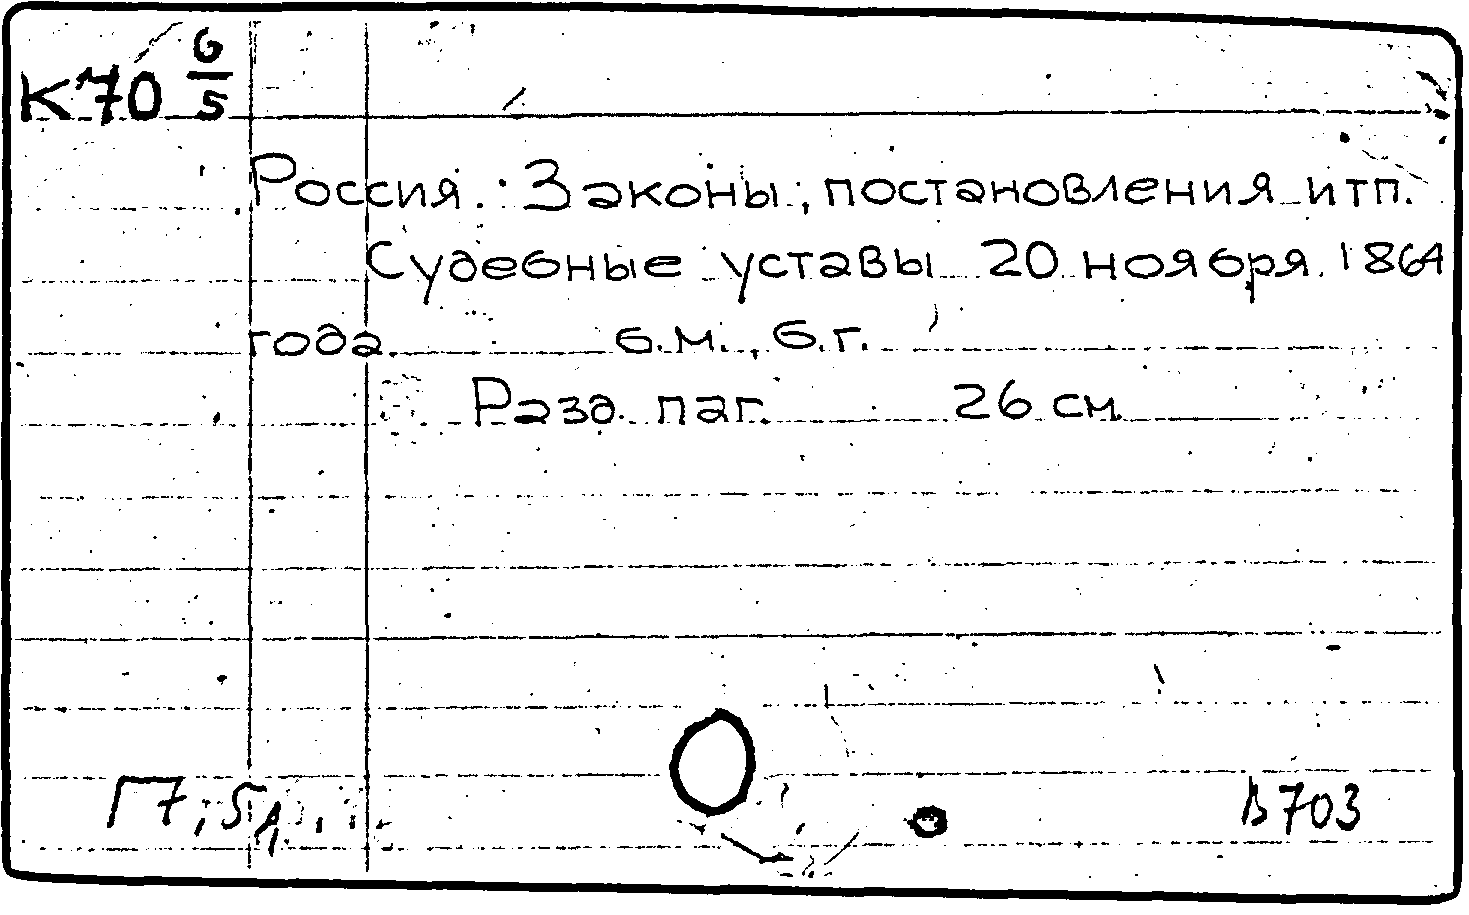 К70 6/5
Россия. Законы, постановления итп.
Судебные уставы 20 ноября 1864
года. б.м., б.г.
Разд. паг. 26 см
В703